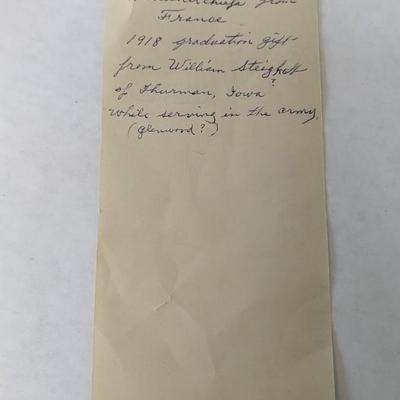 Handkerchiefs from
France
1918 graduation gift
from William Steigholt
of Thurman, Iowa ?
while serving in the army.
(Glenwood?)